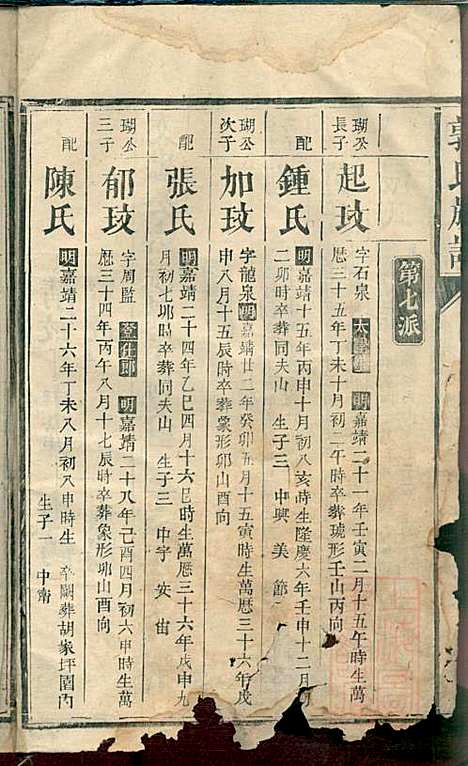 郭氏族譜
第七派
瑚公長子
起玟
字石泉 明嘉靖二十一年壬寅二月十五午時生萬
厯三十五年丁未十月初二午時卒葬琥形壬山丙向
配
鍾氏
明嘉靖十五年丙申十月初八亥時生隆慶六年壬申十二月初
二卯時卒葬同夫山 生子三 中興 美 節
瑚公次子
加玟
字龍泉明嘉靖廿二年癸卯五月十五寅時生萬厯三十六年戊
申八月十五辰時卒葬象形卯山酉向
配
張氏
明嘉靖二十四年乙巳四月十六巳時生萬厯三十六年戊申九
月初七卯時卒葬同夫山 生子三 中宇 安 宙
瑚公三子
郁玟
字周監 登仕郎 明嘉靖二十八年己酉四月初六申時生萬
厯三十四年丙午八月十七辰時卒葬象形卯山酉向
配
陳氏
明嘉靖二十六年丁未八月初八申時生 卒闕葬胡家坪園內
生子一 中南